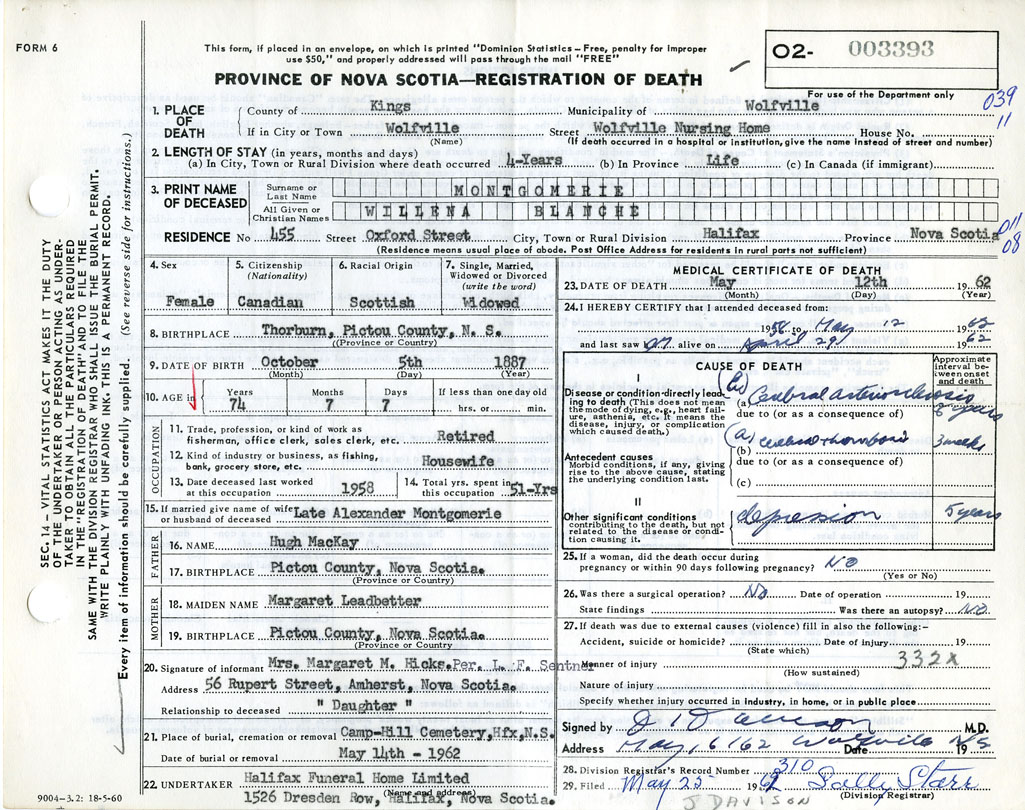 FORM 6
This form, if placed in an envelope, on which is printed "Dominion Statistics – Free, penalty for improper
use $50," and properly addressed will pass through the mail "FREE"
PROVINCE OF NOVA SCOTIA—REGISTRATION OF DEATH
O2- 003393
For use of the Department only
039
11
1. PLACE OF DEATH
County of Kings Municipality of Wolfville
If in City or Town Wolfville Street Wolfville Nursing Home House No.
(Name) (If death occurred in a hospital or institution, give the name instead of street and number)
2. LENGTH OF STAY (in years, months and days)
(a) In City, Town or Rural Division where death occurred 4-Years (b) In Province Life (c) In Canada (if immigrant)
3. PRINT NAME OF DECEASED
Surname or Last Name MONTGOMERIE
All Given or Christian Names WILLENA BLANCHE
RESIDENCE No 455 Street Oxford Street City, Town or Rural Division Halifax Province Nova Scotia
011
08
(Residence means usual place of abode. Post Office Address for residents in rural parts not sufficient)
4. Sex Female
5. Citizenship (Nationality) Canadian
6. Racial Origin Scottish
7. Single, Married, Widowed or Divorced (write the word) Widowed
8. BIRTHPLACE Thorburn, Pictou County, N. S.
(Province or Country)
9. DATE OF BIRTH October 5th 1887
(Month) (Day) (Year)
10. AGE in Years 74 Months 7 Days 7 If less than one day old hrs. or min.
OCCUPATION
11. Trade, profession, or kind of work as
fisherman, office clerk, sales clerk, etc. Retired
12. Kind of industry or business, as fishing,
bank, grocery store, etc. Housewife
13. Date deceased last worked
at this occupation 1958
14. Total yrs. spent in
this occupation 51-Yrs
15. If married give name of wife
or husband of deceased Late Alexander Montgomerie
FATHER
16. NAME Hugh MacKay
17. BIRTHPLACE Pictou County, Nova Scotia.
(Province or Country)
MOTHER
18. MAIDEN NAME Margaret Leadbetter
19. BIRTHPLACE Pictou County, Nova Scotia.
(Province or Country)
20. Signature of informant Mrs. Margaret M. Hicks. Per. L. F. Sentner
Address 56 Rupert Street, Amherst, Nova Scotia.
Relationship to deceased " Daughter "
21. Place of burial, cremation or removal Camp-Hill Cemetery, Hfx, N.S.
Date of burial or removal May 14th - 1962
22 UNDERTAKER Halifax Funeral Home Limited
(Name and address)
1526 Dresden Row, Halifax, Nova Scotia.
MEDICAL CERTIFICATE OF DEATH
23. DATE OF DEATH May 12th 19 62
(Month) (Day) (Year)
24. I HEREBY CERTIFY that I attended deceased from:
1958 to May 12 1962
and last saw alive on April 29 1962
CAUSE OF DEATH
Approximate interval between onset and death
I
Disease or condition directly leading to death (This does not mean the mode of dying, e.g., heart failure, asthenia, etc. It means the disease, injury, or complication which caused death.)
(b) (a) Cerebral arteriosclerosis years
due to (or as a consequence of)
(a) (b) cerebral thrombosis 3 weeks
Antecedent causes
Morbid conditions, if any, giving rise to the above cause, stating the underlying condition last.
due to (or as a consequence of)
(c)
II
Other significant conditions
contributing to the death, but not related to the disease or condition causing it.
depression 5 years
25. If a woman, did the death occur during
pregnancy or within 90 days following pregnancy? NO
(Yes or No)
26. Was there a surgical operation? No Date of operation 19
State findings Was there an autopsy? NO
27. If death was due to external causes (violence) fill in also the following:–
Accident, suicide or homicide? Date of injury 19
(State which)
332X
Manner of injury
(How sustained)
Nature of injury
Specify whether injury occurred in industry, in home, or in public place
Signed by M.D.
Address May 16/62 Wolfville N.S Date 19
28. Division Registrar's Record Number 310
29. Filed May 25 1962 Sally Starr
(Division Registrar)
J DAVISON
9004–3.2: 18-5-60
SEC. 14 – VITAL STATISTICS ACT MAKES IT THE DUTY
OF THE UNDERTAKER OR PERSON ACTING AS UNDER-
TAKER TO OBTAIN ALL THE PARTICULARS REQUIRED
IN THE "REGISTRATION OF DEATH" AND TO FILE THE
SAME WITH THE DIVISION REGISTRAR WHO SHALL ISSUE THE BURIAL PERMIT.
WRITE PLAINLY WITH UNFADING INK. THIS IS A PERMANENT RECORD.
Every item of information should be carefully supplied. (See reverse side for instructions.)